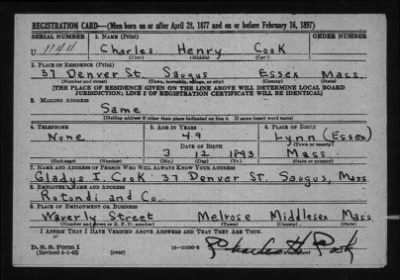 REGISTRATION CARD—(Men born on or after April 28, 1877 and on or before February 16, 1897)
SERIAL NUMBER 1. NAME (Print) ORDER NUMBER
U Charles Henry Cook
(First) (Middle) (Last)
2. PLACE OF RESIDENCE (Print)
37 Denver St. Saugus Essex Mass.
(Number and street) (Town, township, village, or city) (County) (State)
[THE PLACE OF RESIDENCE GIVEN ON THE LINE ABOVE WILL DETERMINE LOCAL BOARD
JURISDICTION; LINE 2 OF REGISTRATION CERTIFICATE WILL BE IDENTICAL]
3. MAILING ADDRESS
Same
[Mailing address if other than place indicated on line 2. If same insert word same]
4. TELEPHONE 5. AGE IN YEARS 6. PLACE OF BIRTH
None 49 Lynn (Essex)
DATE OF BIRTH (Town or county)
3 12 1893 Mass.
(Exchange) (Number) (Mo.) (Day) (Yr.) (State or country)
7. NAME AND ADDRESS OF PERSON WHO WILL ALWAYS KNOW YOUR ADDRESS
Gladys I. Cook 37 Denver St. Saugus, Mass
8. EMPLOYER'S NAME AND ADDRESS
Rotondi and Co.
9. PLACE OF EMPLOYMENT OR BUSINESS
Waverly Street Melrose Middlesex Mass
(Number and street or R. F. D. number) (Town) (County) (State)
I AFFIRM THAT I HAVE VERIFIED ABOVE ANSWERS AND THAT THEY ARE TRUE.
D. S. S. Form 1
(Revised 4-1-42) (over)